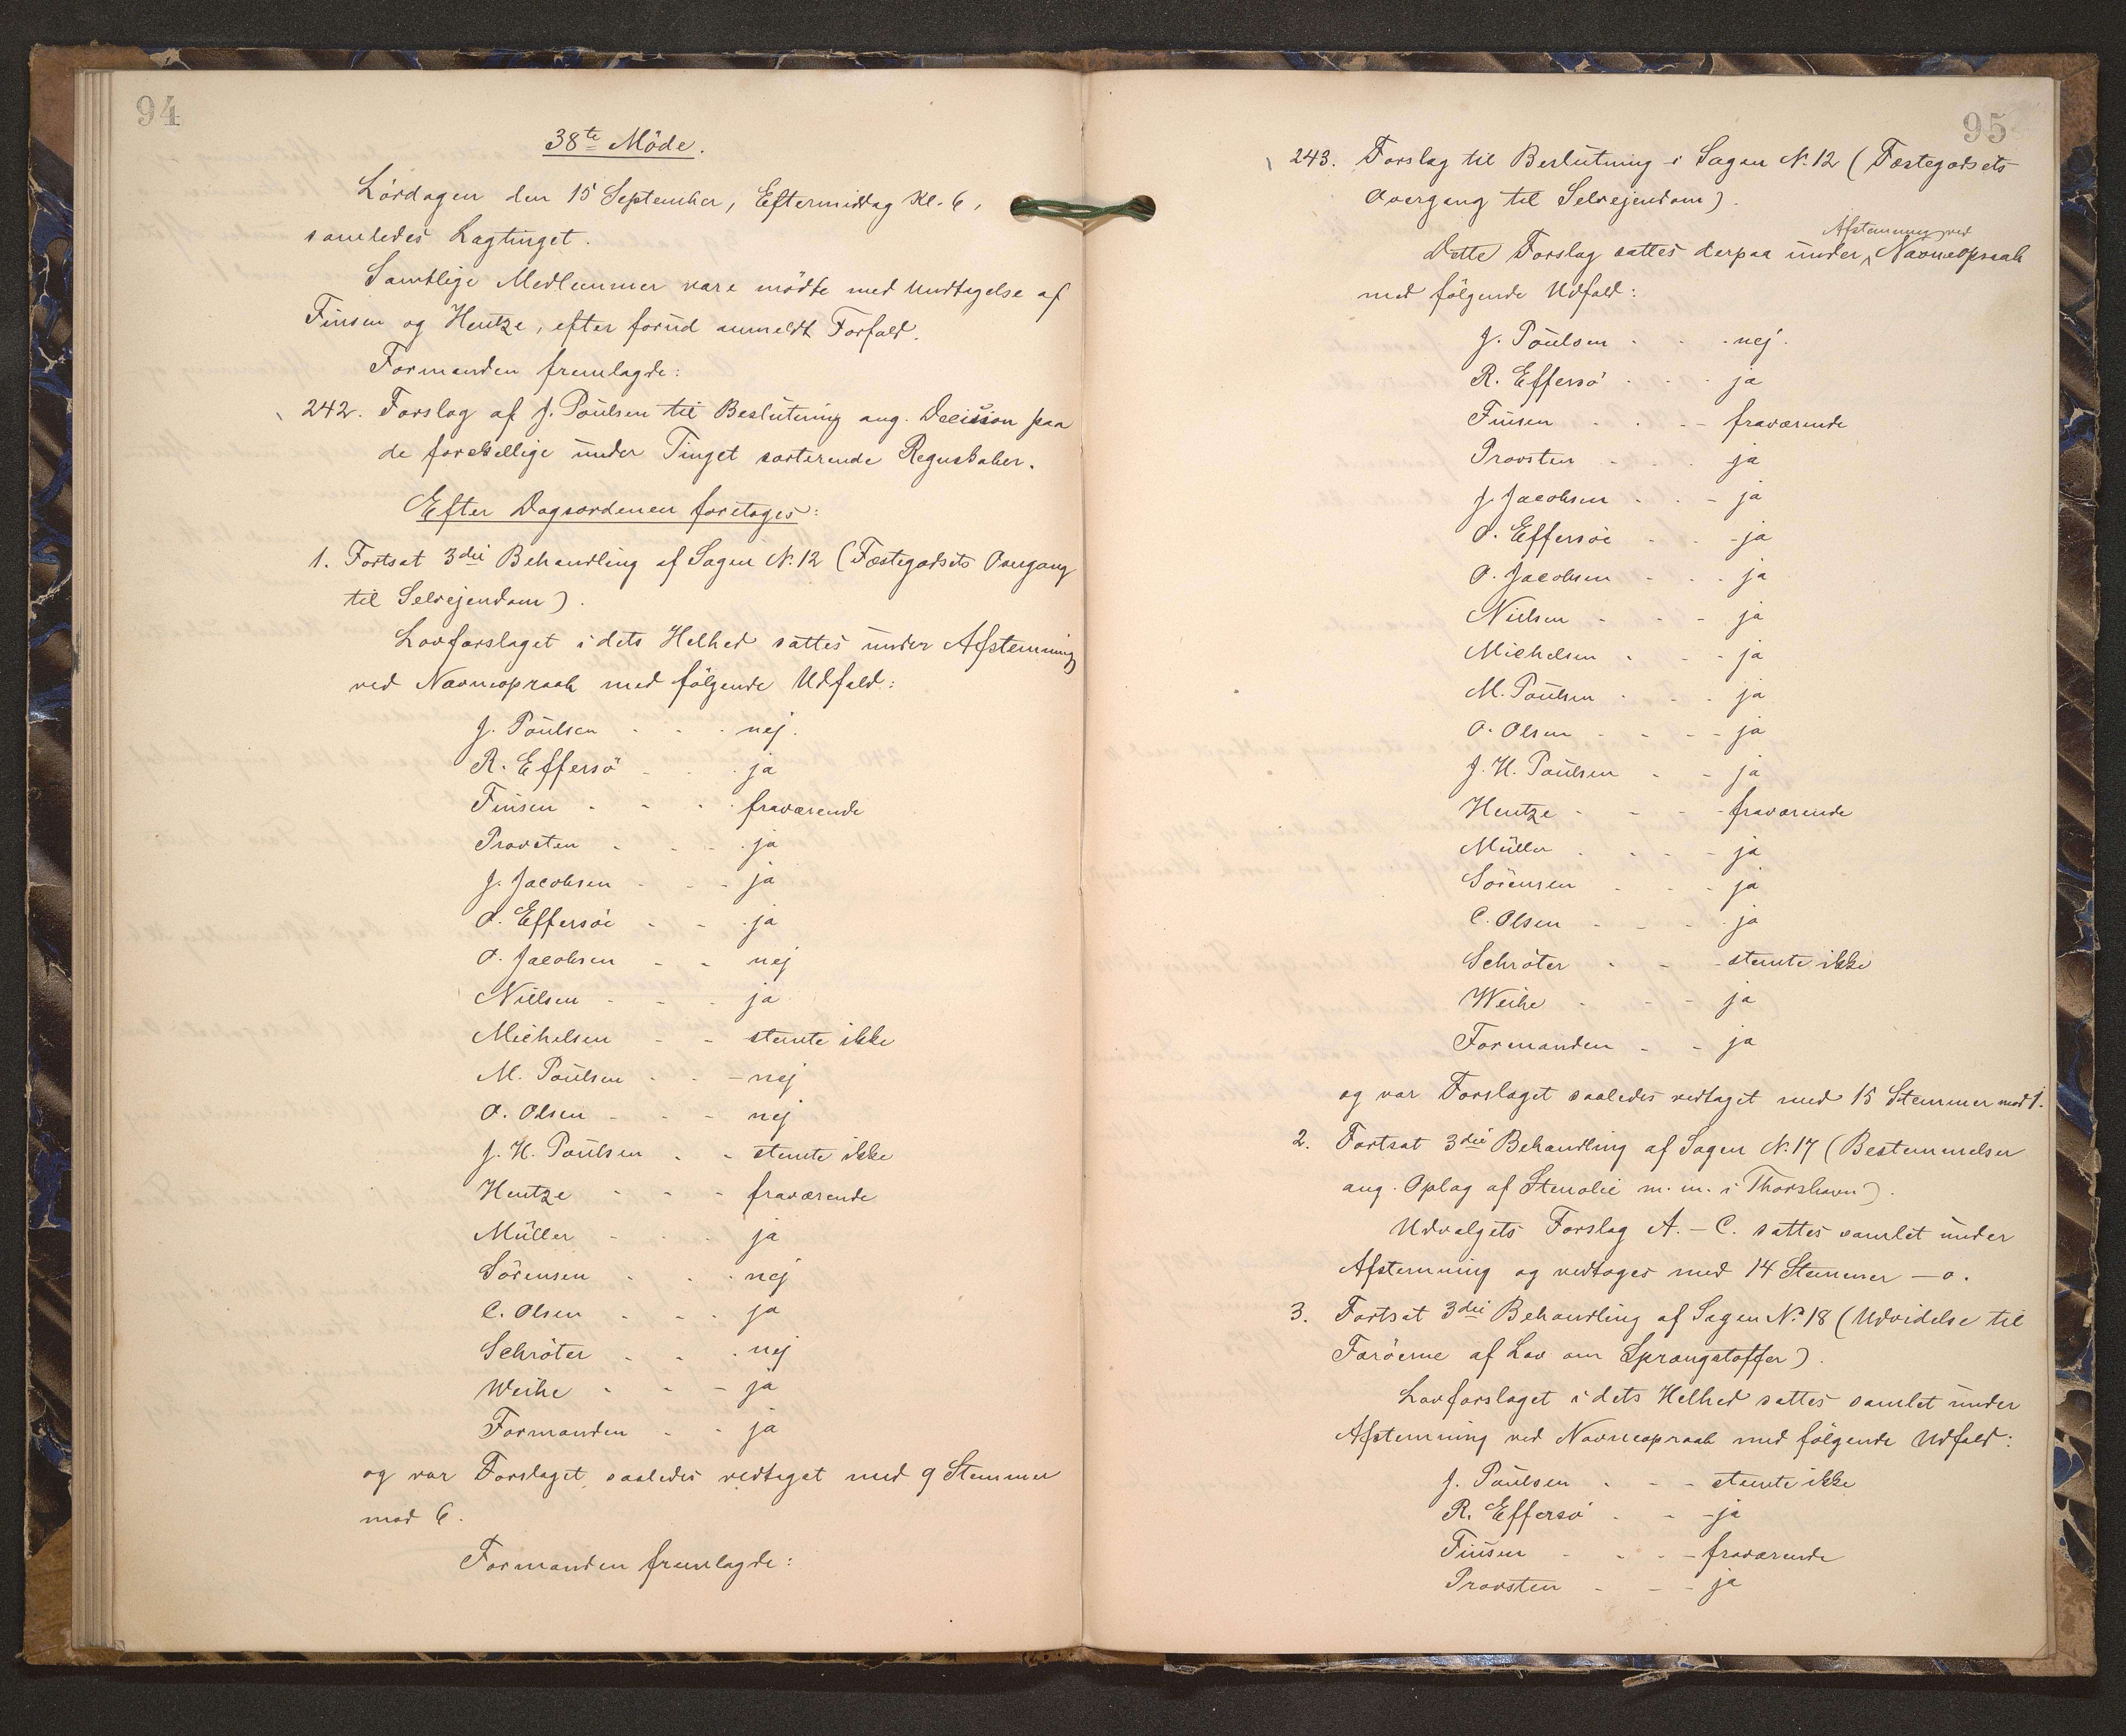 94
38te Möde.
Lördagen den 15 September, Eftermiddag Kl. 6,
samledes Lagtinget.
Samtlige Medlemmer vare mödte med Undtagelse af
Finsen og Hentze, efter forud anmeldt Forfald.
Formanden fremlagde:
242. Forslag af J. Poulsen til Beslutning ang. Decision paa
de forskellige under Tinget sorterende Regnskaber.
Efter Dagsordenen foretoges:
1. Fortsat 3die Behandling af Sagen N. 12 (Fæstegodsets Overgang
til Selvejendom).
Lovforslaget i dets Helhed sattes under Afstemning
ved Navneopraab med fölgende Udfald:
J. Poulsen - - - nej.
R. Effersö - - - ja
Finsen - - - fraværende
Provsten - - - ja
J. Jacobsen - - - ja
O. Effersöe - - - ja
O. Jacobsen - - nej
Nielsen - - - ja
Michelsen - - stemte ikke
M. Poulsen - - - nej
O. Olsen - - - nej
J. H. Poulsen - - stemte ikke
Hentze - - - fraværende
Müller - - - ja
Sörensen - - - nej
C. Olsen - - - ja
Schröter - - - nej
Weihe - - - ja
Formanden - - ja
og var Forslaget saaledes vedtaget med 9 Stemmer
mod 6.
Formanden fremlagde:
95
243. Forslag til Beslutning i Sagen N. 12 (Fæstegodsets
Overgang til Selvejendom).
Afstemning ved
Dette Forslag sattes derpaa under Navneopraab
med fölgende Udfald:
J. Poulsen - - - nej.
R. Effersö - - - ja
Finsen - - - fraværende
Provsten - - - ja
J. Jacobsen - - - ja
O. Effersöe - - - ja
O. Jacobsen - - - ja
Nielsen - - - ja
Michelsen - - - ja
M. Poulsen - - - ja
O. Olsen - - - ja
J. H. Poulsen - - ja
Hentze - - - fraværende
Müller - - - ja
Sörensen - - - ja
C. Olsen - - - ja
Schröter - - - stemte ikke
Weihe - - - ja
Formanden - - ja
og var Forslaget saaledes vedtaget med 15 Stemmer mod 1.
2. Fortsat 3die Behandling af Sagen N. 17 (Bestemmelser
ang. Oplag af Stenolie m. m. i Thorshavn).
Udvalgets Forslag A. - C. sattes samlet under
Afstemning og vedtoges med 14 Stemmer - 0.
3. Fortsat 3die Behandling af Sagen No. 18 (Udvidelse til
Færöerne af Lov om Sprængstoffer).
Lovforslaget i dets Helhed sattes samlet under
Afstemning ved Navneopraab med fölgende Udfald:
J. Poulsen - - - stemte ikke
R. Effersö - - - ja
Finsen - - - fraværende
Provsten - - - ja